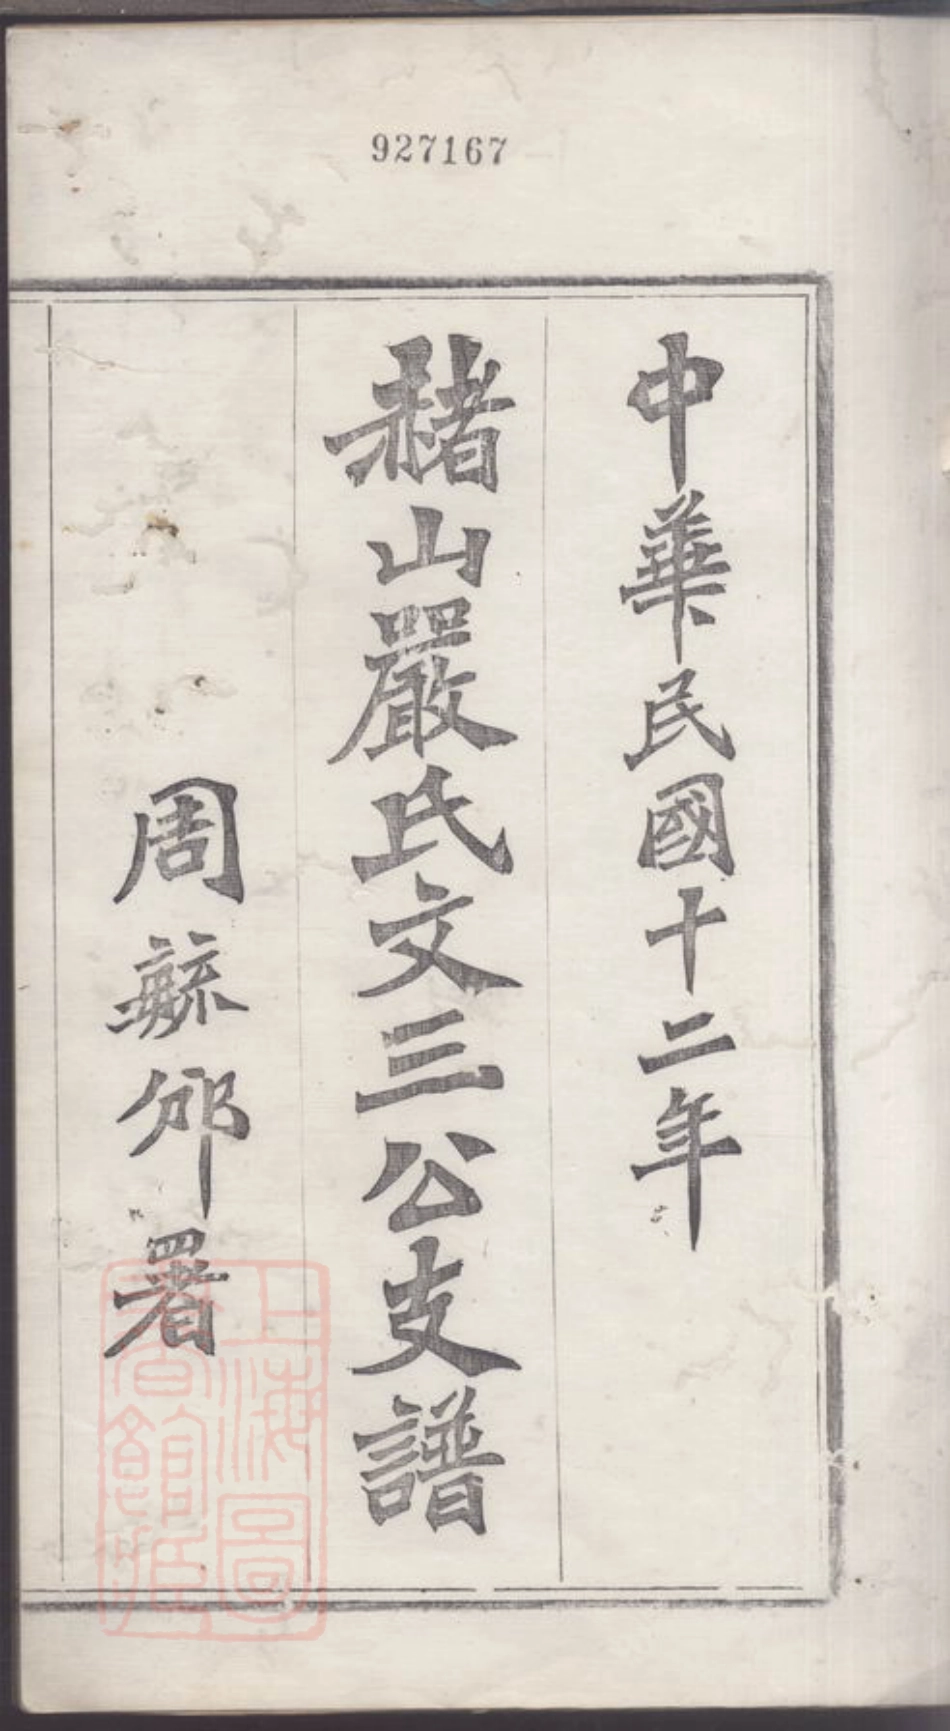 927167
中華民國十二年
赭山嚴氏文三公支譜
周毓邠署
上海圖
書館藏